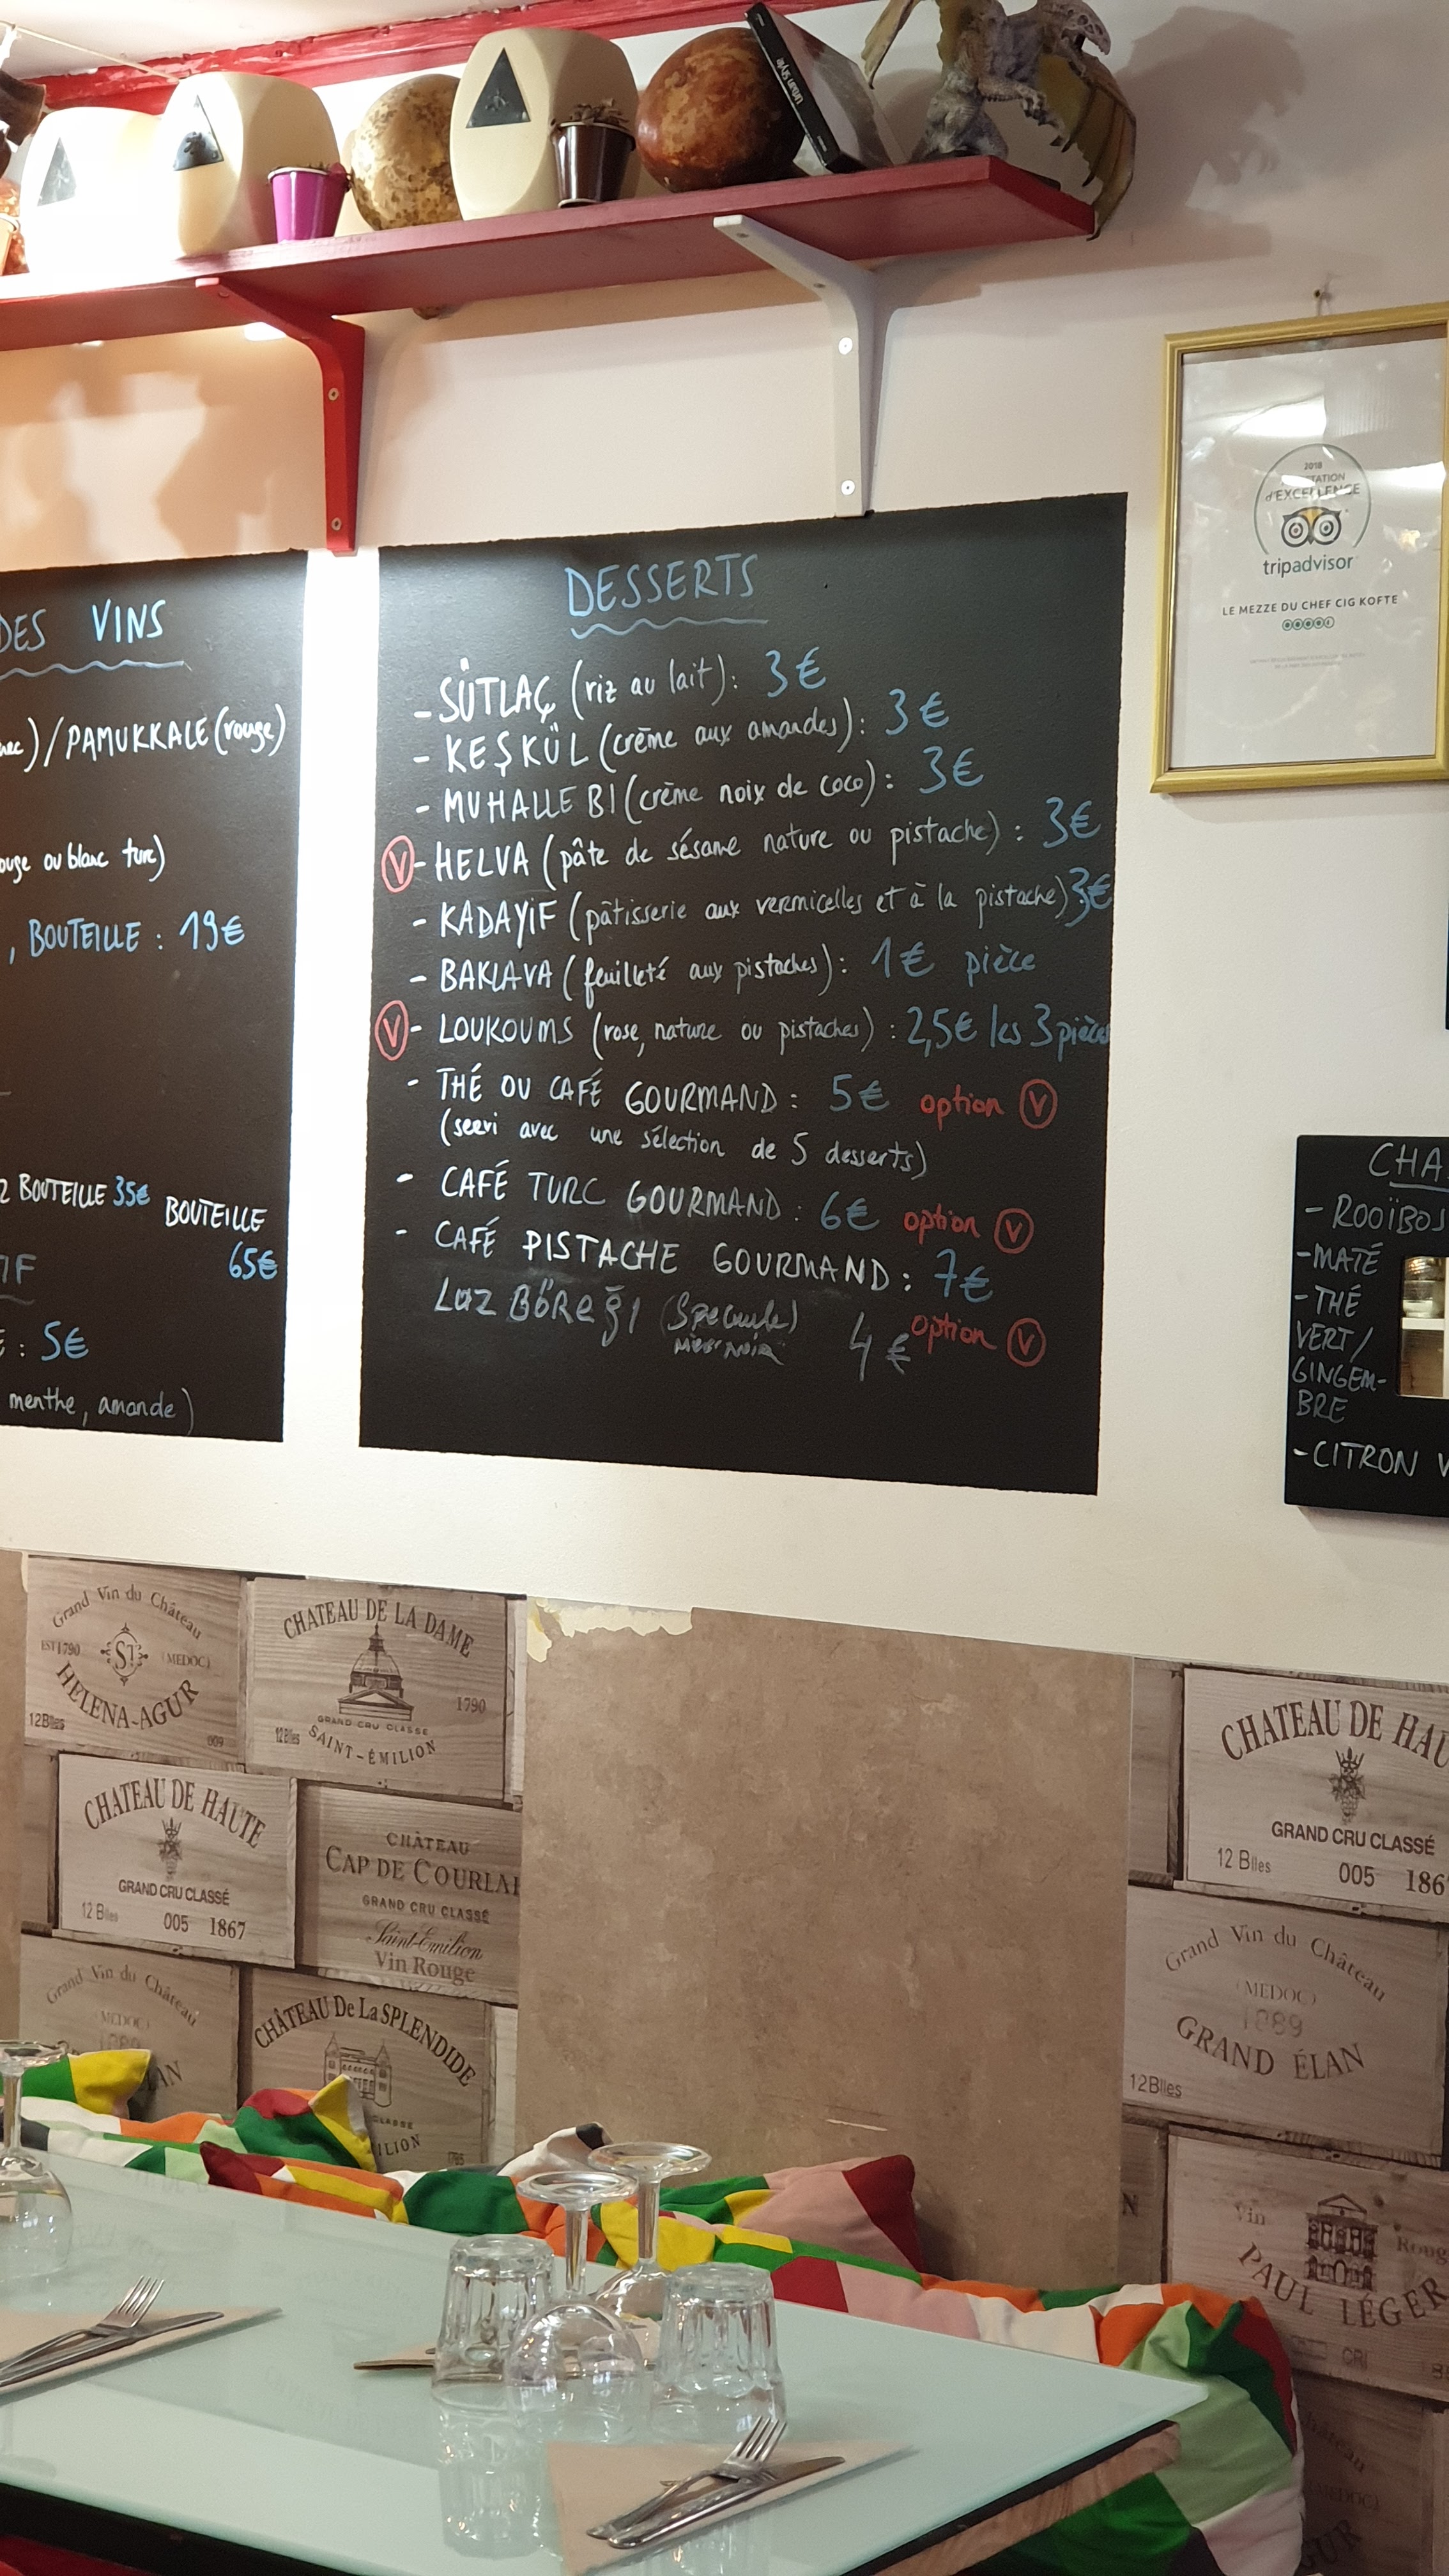 Urban Style
2018
d'EXCELLENCE
tripadvisor
LE MEZZE DU CHEF CIG KOFTE
DES VINS
/PAMUKKALE (rouge)
ouge ou blanc turc)
, BOUTEILLE : 19€
BOUTEILLE 35€ BOUTEILLE
65€
: 5€
menthe, amande)
DESSERTS
- SÜTLAÇ (riz au lait): 3€
- KEŞKÜL (crème aux amandes): 3€
- MUHALLEBI (crème noix de coco): 3€
Ⓥ- HELVA (pâte de sésame nature ou pistache) : 3€
- KADAYiF (pâtisserie aux vermicelles et à la pistache): 3€
- BAKLAVA (feuilleté aux pistaches): 1€ pièce
Ⓥ- LOUKOUMS (rose, nature ou pistaches) : 2,5€ les 3 pièces
- THÉ OU CAFÉ GOURMAND : 5€ option Ⓥ
(servi avec une sélection de 5 desserts)
- CAFÉ TURC GOURMAND : 6€ option Ⓥ
- CAFÉ PISTACHE GOURMAND : 7€
option Ⓥ
Laz BöReğI 4€
CHA
- ROOÏBOS
- MATÉ
- THÉ
VERT/
GINGEM-
BRE
- CITRON V
Grand Vin du Château
EST 1790 ST (MEDOC)
HELENA-AGUR
12Blles 009
CHATEAU DE LA DAME
1790
GRAND CRU CLASSE
12Blles SAINT-ÉMILION
CHATEAU DE HAUTE
GRAND CRU CLASSÉ
12 Blles 005 1867
CHÂTEAU
CAP DE COURLA
GRAND CRU CLASSÉ
Saint-Emilion
Vin Rouge
Grand Vin du Château
(MEDOC)
LAN
CHÂTEAU De La SPLENDIDE
CLASSE
ILION
CHATEAU DE HAU
GRAND CRU CLASSÉ
12 Blles 005 186
Grand Vin du Château
(MEDOC)
1889
GRAND ÉLAN
12Blles
Vin Roug
PAUL LÉGER